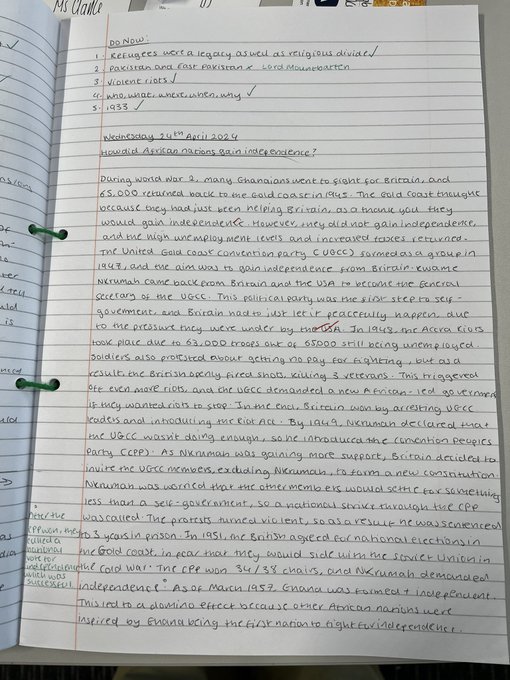 Ms Clance
DO NOW:
1. Refugees were a legacy aswell as religious divide ✓
2. Pakistan and East Pakistan x Lord Mountbatten
3. Violent riots ✓
4. Who, what, where, when, why ✓
5. 1933 ✓
Wednesday 24th April 2024
How did African nations gain independence?
During World War 2, many Ghanaians went to fight for Britain, and
65,000 returned back to the Gold coast in 1945. The Gold Coast thought
because they had just been helping Britain, as a thank you they
would gain independence. However, they did not gain independence,
and the high unemployment levels and increased taxes returned.
The United Gold coast convention party (UGCC) formed as a group in
1947, and the aim was to gain independence from Britain. Kwame
Nkrumah came back from Britain and the USA to become the General
Secretary of the UGCC. This political party was the first step to self-
government, and Britain had to just let it peacefully happen, due
to the pressure they were under by the USA. In 1948, the Accra Riots
took place due to 63,000 troops out of 65000 still being unemployed.
Soldiers also protested about getting no pay for fighting, but as a
result, the British openly fired shots, killing 3 veterans. This triggered
off even more riots, and the UGCC demanded a new African-led governmen
if they wanted riots to stop. In the end, Britain won by arresting UGCC
leaders and introducing the Riot Act. By 1949, Nkrumah declared that
the UGCC wasn't doing enough, so he introduced the Convention Peoples
Party (CPP). As Nkrumah was gaining more support, Britain decided to
invite the UGCC members, excluding Nkrumah, to form a new constitution.
Nkrumah was worried that the other members would settle for something
less than a self-government, so a national strike through the CPP
was called. The protests turned violent, so as a result he was sentenced
to 3 years in prison. In 1951, the British agreed for national elections in
the Gold coast, in fear that they would side with the Soviet Union in
the Cold War. The CPP won 34/38 chairs, and Nkrumah demanded
independence. As of March 1957, Ghana was formed + independent.
This led to a domino effect because other African nations were
inspired by Ghana being the first nation to fight for independence.
After the
CPP won, they
called a
national
vote for
independence
which was
successful